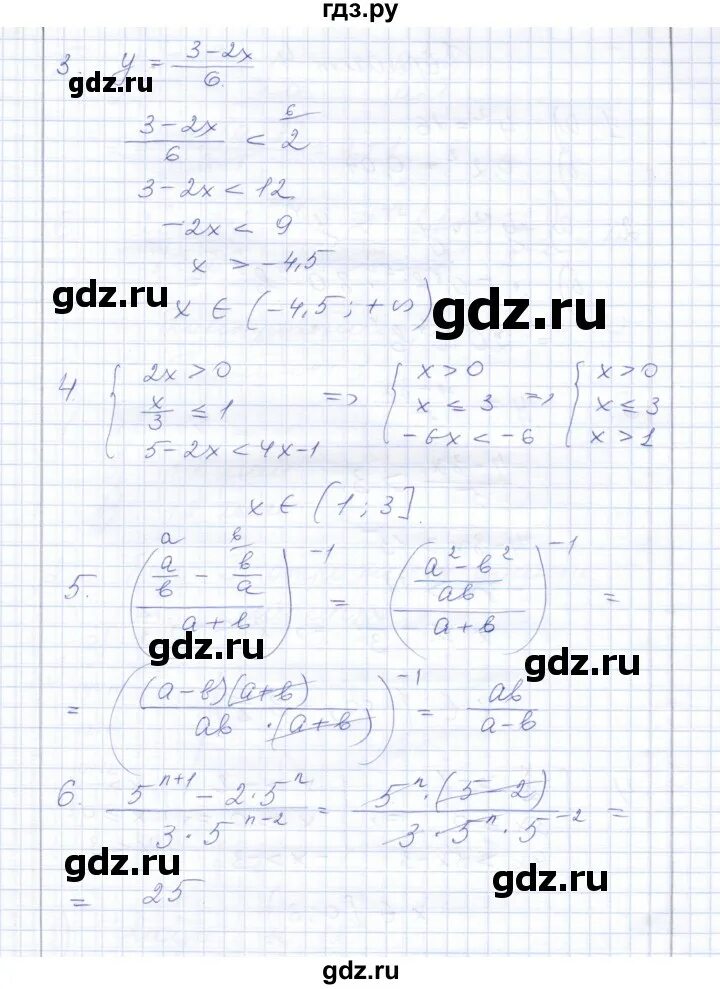 гдз.ру
3. y = (3-2x)/6
gdz.ru
(3-2x)/6 < 2 6
3-2x < 12
-2x < 9
x > -4,5
gdz.ru
x ∈ (-4,5; +∞)
gdz.ru
4. { 2x > 0 ; x/3 ≤ 1 ; 5-2x < 4x-1 => { x > 0 ; x ≤ 3 ; -6x < -6 => { x > 0 ; x ≤ 3 ; x > 1
x ∈ (1; 3].
a в
5. ((a/в - в/a)/(a+в))^-1 = (((a^2-в^2)/aв)/(a+в))^-1 =
gdz.ru
gdz.ru
= ((a-в)(a+в)/(aв·(a+в)))^-1 = aв/(a-в)
6. (5^(n+1) - 2·5^n)/(3·5^(n-2)) = (5^n·(5-2))/(3·5^n·5^-2) =
gdz.ru
gdz.ru
= 25.
gdz.ru